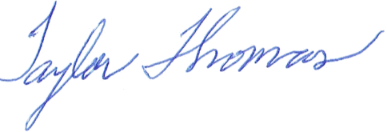 Taylor Thomas